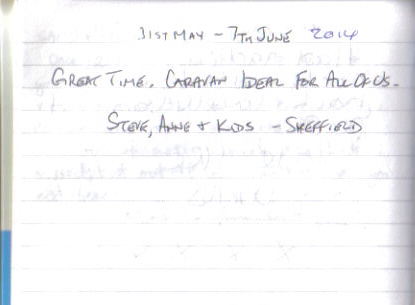 31ST MAY - 7TH JUNE 2014
GREAT TIME. CARAVAN IDEAL FOR ALL OF US.
STEVE, ANNE + KIDS - SHEFFIELD